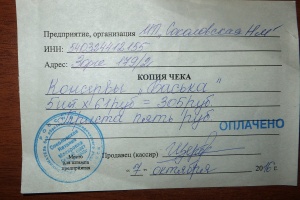 Предприятие, организация ИП Соколовская Н.М.
ИНН:
Адрес: Зорге 179/2
КОПИЯ ЧЕКА
Консервы „Васька"
5шт х 61руб = 305руб.
Триста пять руб.
ОПЛАЧЕНО
Место для штампа предприятия
Продавец (кассир)
"7" октября 2016 г.